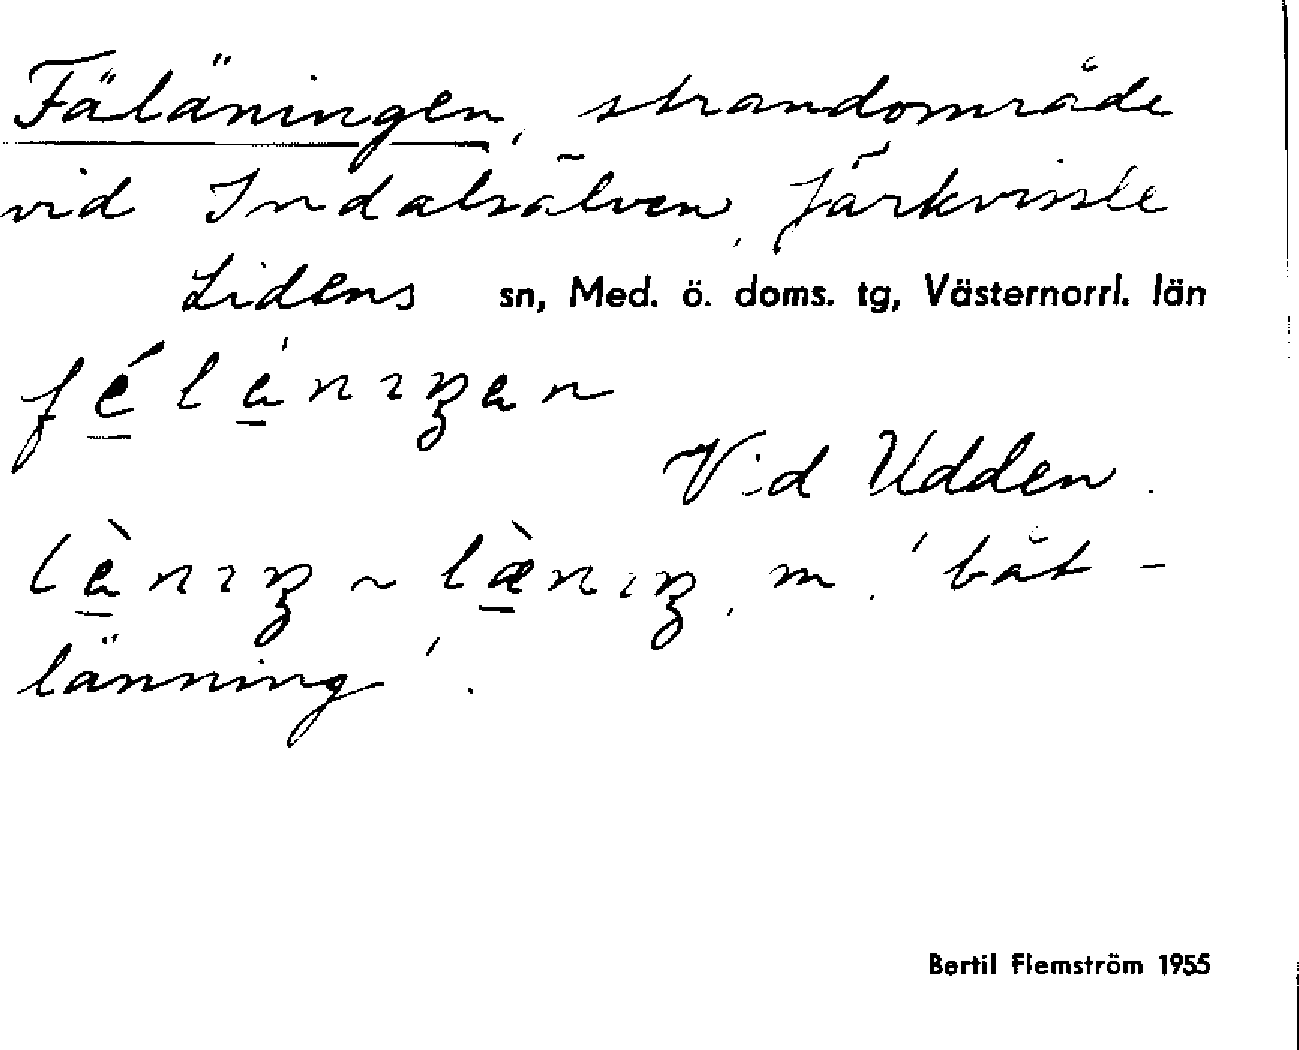 Fäläningen, strandområde
vid Indalsälven, Järkvissle
Lidens sn, Med. ö. doms. tg, Västernorrl. län
Vid Udden.
m. 'båt-
länning'.
Bertil Flemström 1955